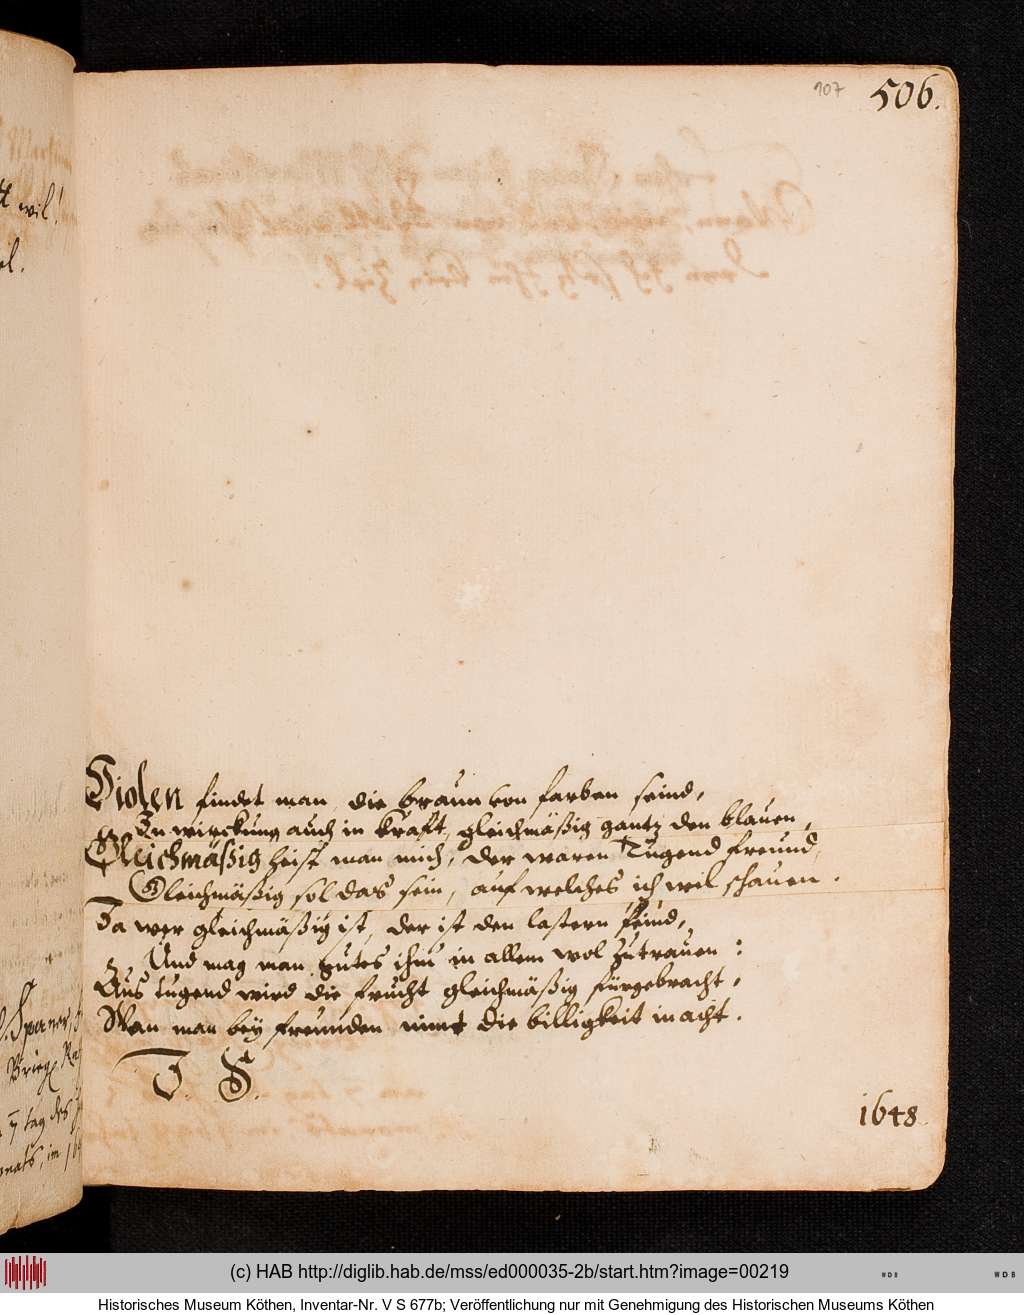 107
506.
Violen findet man die braun von farben seind,
In wirckung auch in kraft, gleichmäßig gantz den blauen,
Gleichmäßig heist man mich, der waren Tugend freund,
Gleichmäßig sol das sein, auf welches ich wil schauen.
Ja wer gleichmäßig ist, der ist den lastern feind,
Und mag man gutes ihm in allem wol zutrauen:
Aus tugend wird die frucht gleichmäßig fürgebracht,
Wan man bey freunden nimt die billigkeit in acht.
1648
wil!
(c) HAB http://diglib.hab.de/mss/ed000035-2b/start.htm?image=00219
WDB
WDB
Historisches Museum Köthen, Inventar-Nr. V S 677b; Veröffentlichung nur mit Genehmigung des Historischen Museums Köthen